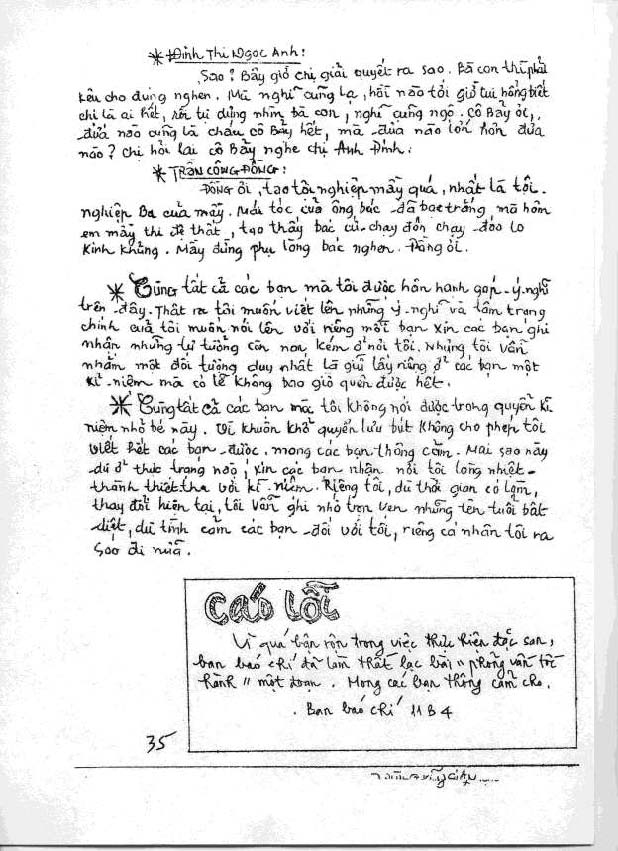 * Đinh Thị Ngọc Anh:
Sao? Bây giờ chị giải quyết ra sao. Bà con thì phải
kêu cho đúng nghen. Mà nghĩ cũng lạ, hồi nào tới giờ tui hổng biết
chị là ai hết, rồi tự dưng nhìn bà con, nghĩ cũng ngộ. Cô Bảy ơi,
đứa nào cũng là cháu cô Bảy hết, mà đứa nào lớn hơn đứa
nào? Chị hỏi lại cô Bảy nghe chị Anh Đinh.
* TRẦN CÔNG ĐỒNG:
Đồng ơi, tao tội nghiệp mầy quá, nhất là tội
nghiệp Ba của mầy. Mái tóc của ông bác đã bạc trắng, mà hôm
em mầy thi đệ thất, tao thấy bác cứ chạy đôn chạy đáo lo
kinh khủng. Mầy đừng phụ lòng bác nghen. Đồng ơi.
* Cùng tất cả các bạn mà tôi được hân hạnh góp ý nghĩ
trên đây. Thật ra tôi muốn viết lên những ý nghĩ và tâm trạng
chính của tôi muốn nói lên với riêng mỗi bạn xin các bạn ghi
nhận những tư tưởng còn non kém ở nơi tôi. Nhưng tôi vẫn
nhằm một đối tượng duy nhất là giữ lấy riêng ở các bạn một
kỉ niệm mà có lẽ không bao giờ quên được hết.
* Cùng tất cả các bạn mà tôi không nói được trong quyển kỉ
niệm nhỏ bé này. Vì khuôn khổ quyển lưu bút không cho phép tôi
viết hết các bạn được, mong các bạn thông cảm. Mai sau này
dù ở thực trạng nào, xin các bạn nhận nơi tôi lòng nhiệt
thành thiết tha với kỉ niệm. Riêng tôi, dù thời gian có làm,
thay đổi hiện tại, tôi vẫn ghi nhớ trọn vẹn những tên tuổi bất
diệt, dù tình cảm các bạn đối với tôi, riêng cá nhân tôi ra
sao đi nữa.
Cáo lỗi
Vì quá bận rộn trong việc thực hiện đặc san,
ban báo chí đã làm thất lạc bài "phỏng vấn tốc
hành" một đoạn. Mong các bạn thông cảm cho.
Ban báo chí 11B4
35